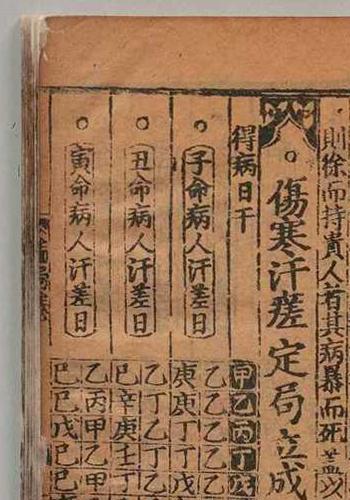 則徐而持責人若其病暴而死
傷寒汗瘥定局立成
得病日干
甲乙丙丁
子命病人汗差日
乙乙丁
庚庚丁
丑命病人汗差日
乙丁丁
巳辛庚壬
寅命病人汗差日
乙丙甲乙甲
巳巳戊巳巳